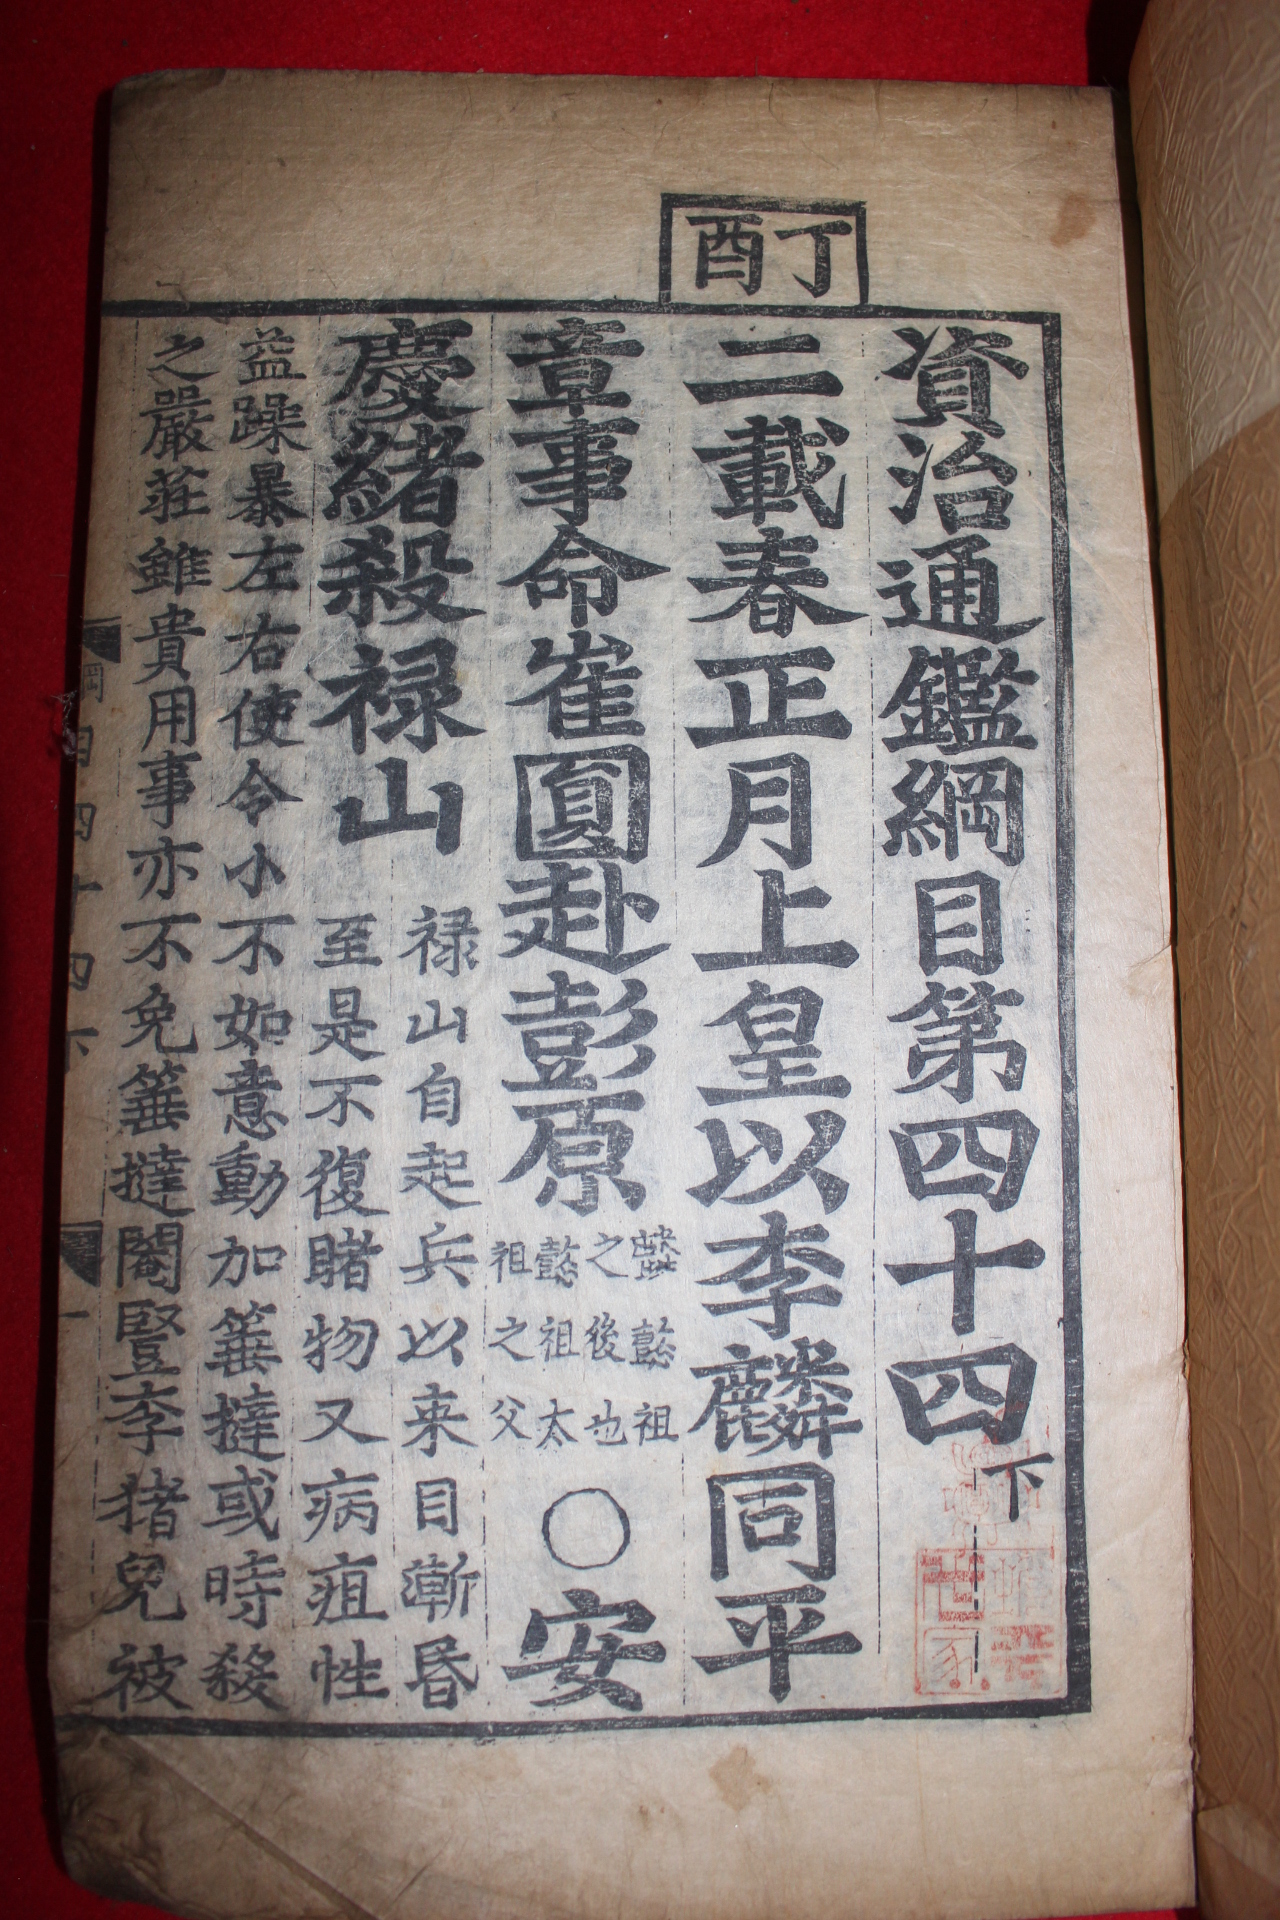 丁酉
資治通鑑綱目第四十四下
二載春正月上皇以李麟同平
章事命崔圓赴彭原
麟懿祖
之後也
懿祖太
祖之父
○安
慶緒殺祿山
祿山自起兵以来目漸昏
至是不復睹物又病疽性
益躁暴左右使令小不如意動加箠撻或時殺
之嚴莊雖貴用事亦不免箠撻閹豎李猪兒被
綱目四十四下
一